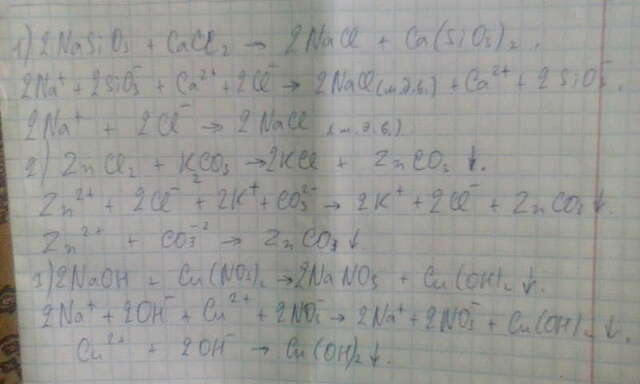 1) 2NaSiO₃ + CaCl₂ → 2NaCl + Ca(SiO₃)₂.
2Na⁺ + 2SiO₃⁻ + Ca²⁺ + 2Cl⁻ → 2NaCl (м.д.в.) + Ca²⁺ + 2SiO₃⁻.
2Na⁺ + 2Cl⁻ → 2NaCl (м.д.в.)
2) ZnCl₂ + K₂CO₃ → 2KCl + ZnCO₃ ↓.
Zn²⁺ + 2Cl⁻ + 2K⁺ + CO₃²⁻ → 2K⁺ + 2Cl⁻ + ZnCO₃ ↓.
Zn²⁺ + CO₃⁻² → ZnCO₃ ↓.
3) 2NaOH + Cu(NO₃)₂ → 2NaNO₃ + Cu(OH)₂ ↓.
2Na⁺ + 2OH⁻ + Cu²⁺ + 2NO₃⁻ → 2Na⁺ + 2NO₃⁻ + Cu(OH)₂ ↓.
Cu²⁺ + 2OH⁻ → Cu(OH)₂ ↓.